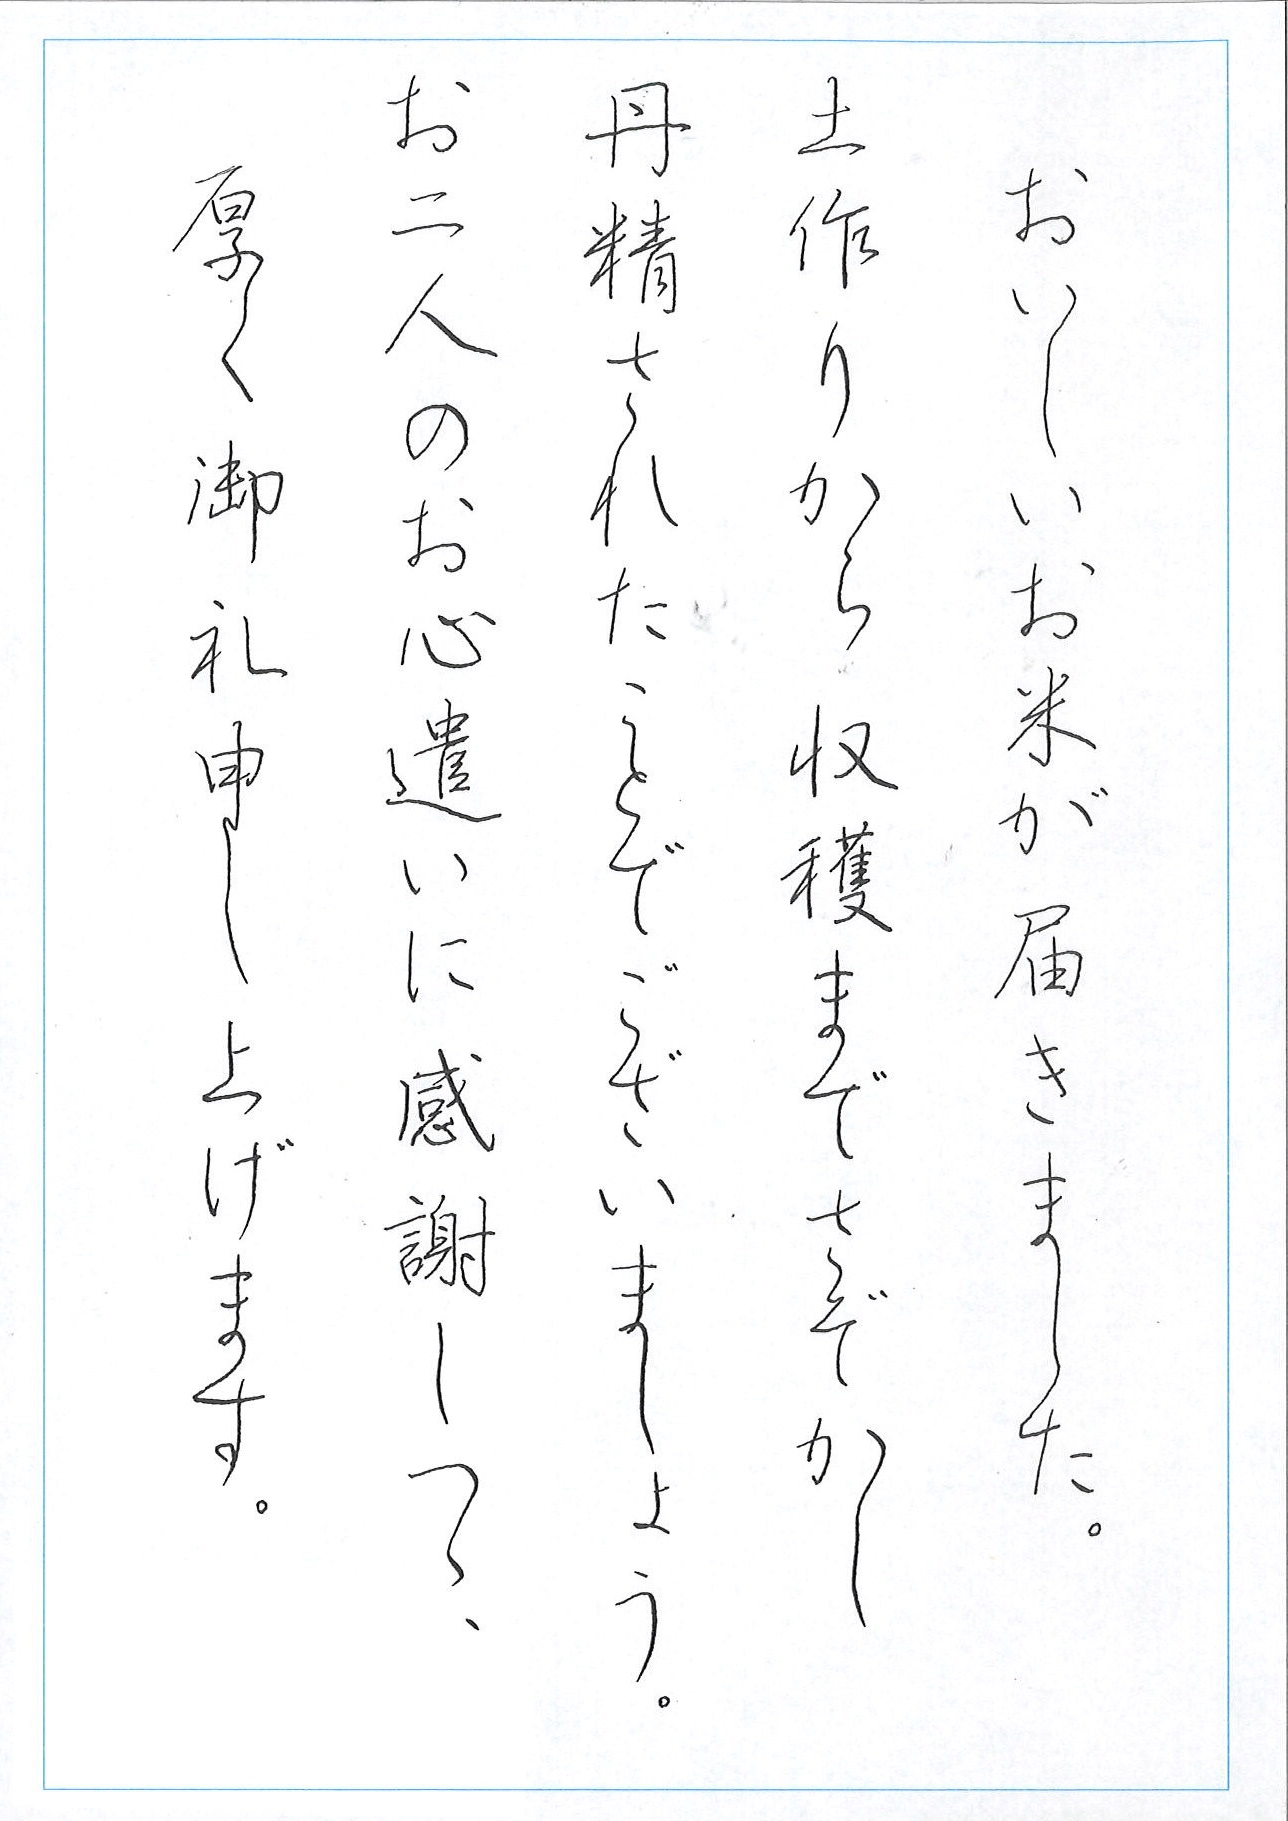 おいしいお米が届きました。
土作りから収穫までさぞかし
丹精されたことでございましょう。
お二人のお心遣いに感謝しつゝ、
厚く御礼申し上げます。